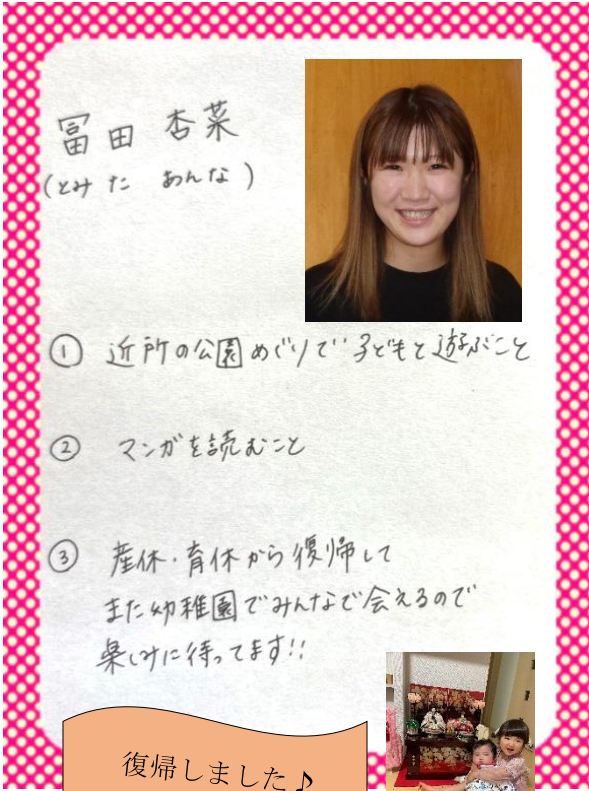 冨田 杏菜
(とみた あんな)
① 近所の公園めぐりで子どもと遊ぶこと
② マンガを読むこと
③ 産休・育休から復帰して
また幼稚園でみんなで会えるので
楽しみに待ってます!!
復帰しました♪